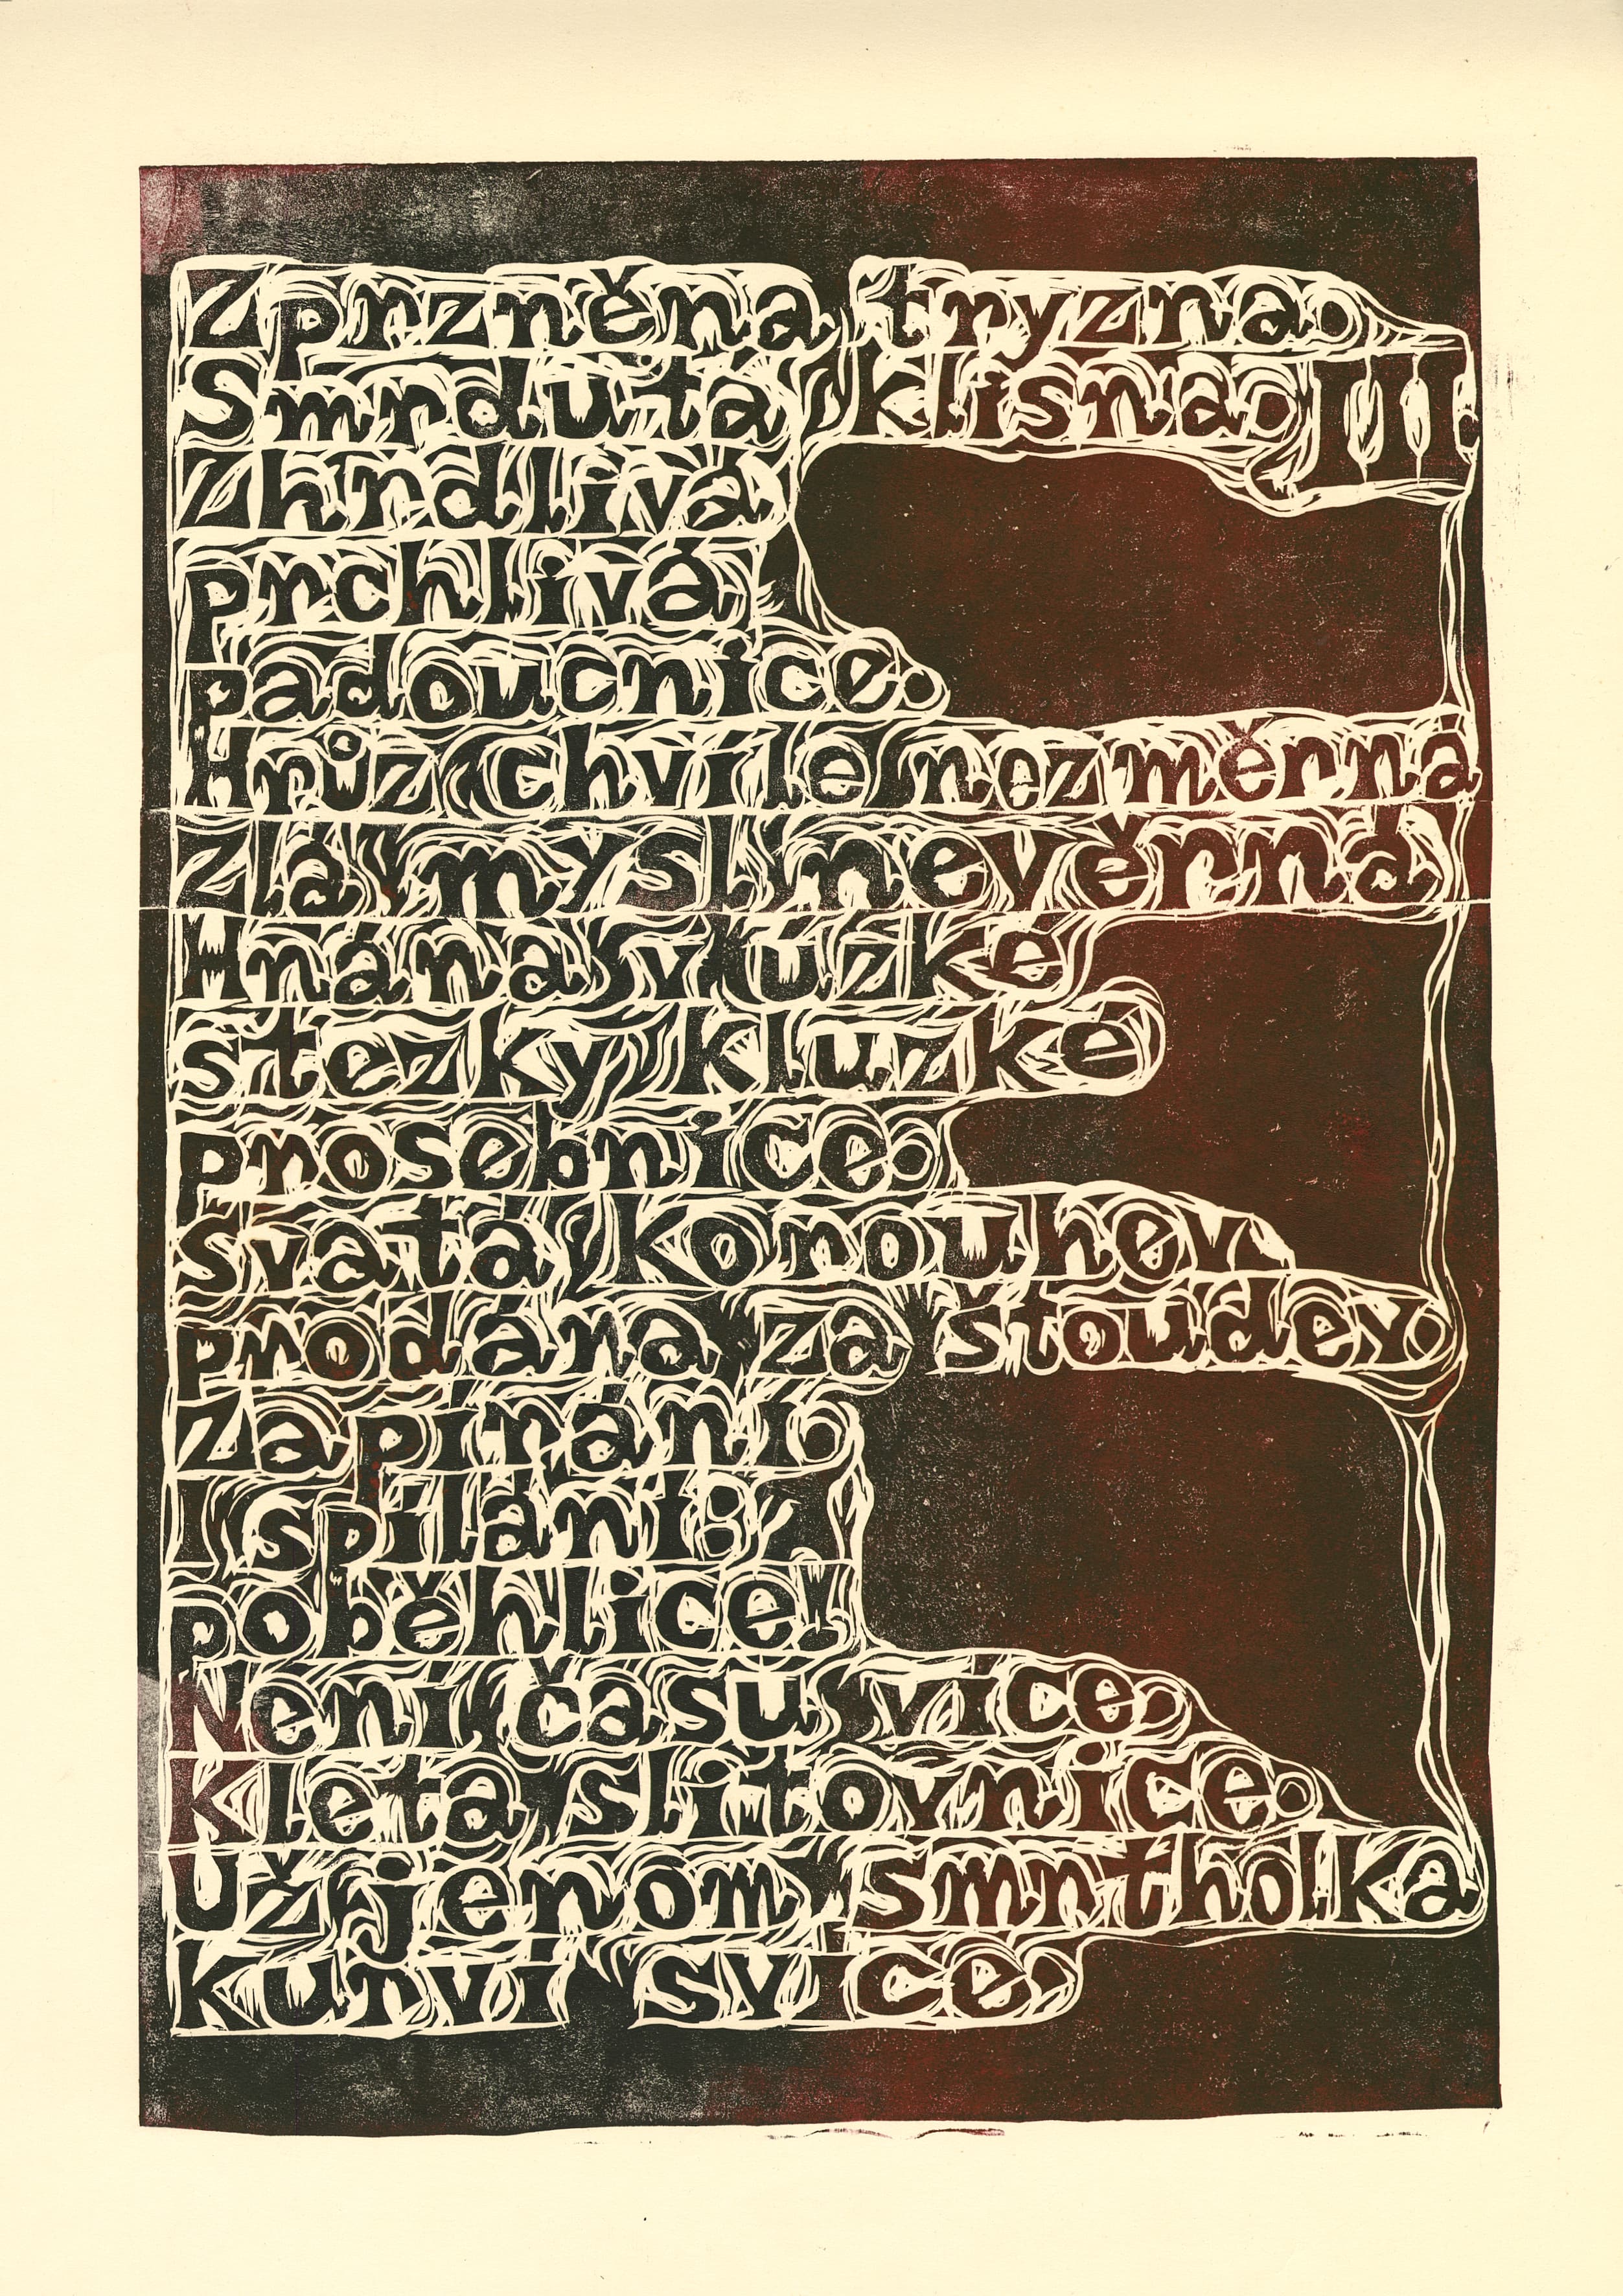 Zprzněna tryzna.
Smrdutá klisna. III.
Zhrdlivá
prchlivá
padoucnice.
Hrůz chvíle nezměrná
Zlá mysl nevěrná
Hnána v úzké
stezky kluzké
prosebnice.
Svatá korouhev
prodána za štoudev.
Za pírání.
I spílání:
poběhlice!
Není času více.
Kletá slitovnice.
Už jenom smrtholka
kurví svíce.